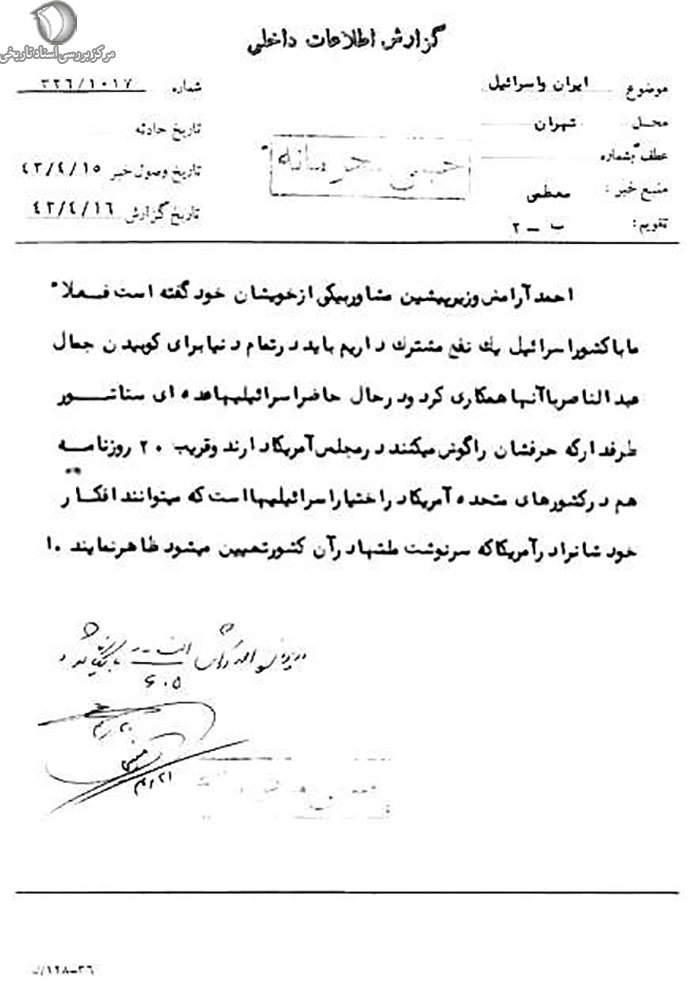 مرکز بررسی اسناد تاریخی
گزارش اطلاعات داخلی
موضوع ایران و اسرائیل
شماره ۳۲۶/۱۰۱۷
محل تهران
تاریخ حادثه
عطف بشماره
خیلی محرمانه
تاریخ وصول خبر ۴۳/۴/۱۵
منبع خبر: معظمی
تاریخ گزارش ۴۳/۴/۱۶
تقویم: ب - ۲
احمد آرامش وزیر پیشین مشاور بیکی از خویشان خود گفته است فعلا"
ما با کشور اسرائیل یك نفع مشترك داریم باید در تمام دنیا برای کوبیدن جمال
عبد الناصر با آنها همکاری کرد و در حال حاضر اسرائیلیها عده ای سناتور
طرفدار که حرفشان را گوش میکنند در مجلس آمریکا دارند و قریب ۲۰ روزنامه
هم در کشورهای متحده آمریکا در اختیار اسرائیلیها است که میتوانند افکار
خود شانرا در آمریکا که سرنوشت ملتها در آن کشور تعیین میشود ظاهر نمایند ۱۰